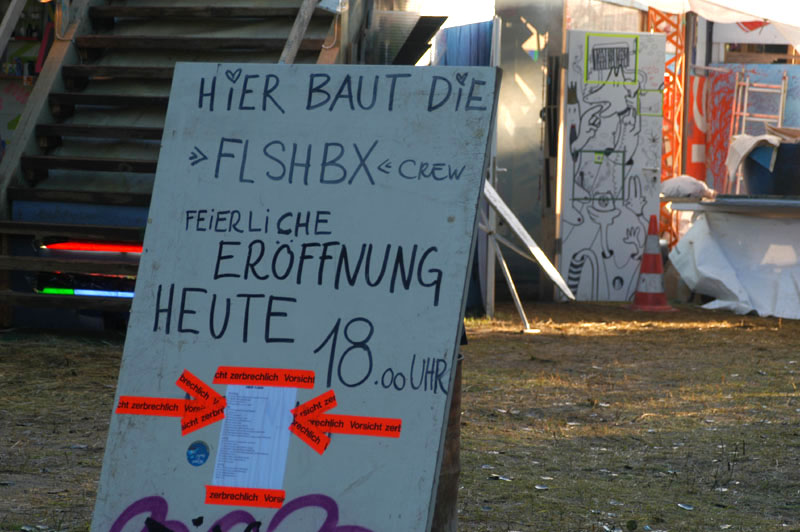 HiER BAUT DiE
» FLSHBX « CREW
FEiERLiCHE
ERÖFFNUNG
HEUTE 18.00 UHR
cht zerbrechlich Vorsicht
brechlich
cht zerbrechlich
sicht zerb
rsicht zer
rbrechlich Vorsicht zerb
brechlich
zerbrechlich Vorsi